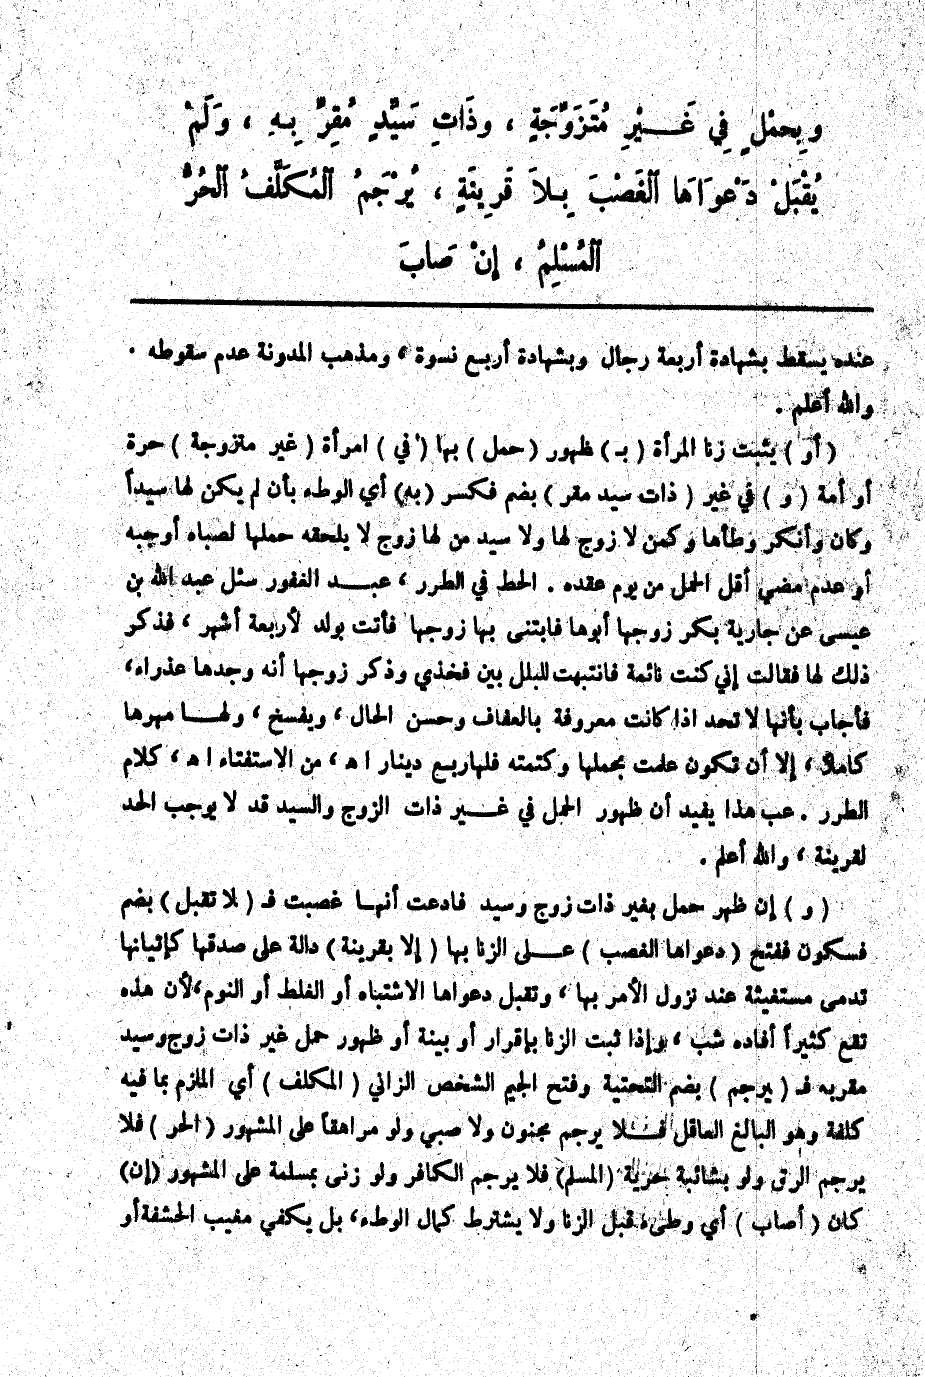 وبِحمْلٍ فِي غَـيْرِ مُتَزَوِّجَةٍ ، وذَاتِ سَيِّدٍ مُقِرٍّ بِـهِ ، وَلَمْ
يُقْبَلْ دَعْوَاهَا ٱلْغَصْبَ بِـلاَ قَرِينَةٍ ، يُرْجَمُ ٱلْمُكَلَّفُ ٱلْحُرُّ
ٱلْمُسْلِمُ ، إِنْ صَابَ
عنده يسقط بشهادة أربعة رجال وبشهادة أربع نسوة ، ومذهب المدونة عدم سقوطه .
والله أعلم .
( أو ) يثبت زنا المرأة ( بـ ) ظهور ( حمل ) بها ( في ) امرأة ( غير متزوجة ) حرة
أو أمة ( و ) في غير ( ذات سيد مقر ) بضم فكسر ( به ) أي الوطء بأن لم يكن لها سيداً
وكان وأنكر وطأها وكمن لا زوج لها ولا سيد من لها زوج لا يلحقه حملها لصباه أوجبه
أو عدم مضي أقل الحمل من يوم عقده . الحط في الطرر ، عبـد الغفور سئل عبد الله بن
عيسى عن جارية بكر زوجها أبوها فابتنى بها زوجها فأتت بولد لأربعة أشهر ، فذكر
ذلك لها فقالت إني كنت نائمة فانتبهت للبلل بين فخذي وذكر زوجها أنه وجدها عذراء،
فأجاب بأنها لا تحد اذا كانت معروفة بالعفاف وحسن الحال ، ويفسخ ، ولهـا مهرها
كاملاً ، إلا أن تكون علمت بحملها وكتمته فلها ربع دينار ا ه ، من الاستفتاء ا ه ، كلام
الطرر . عب هذا يفيد أن ظهور الحمل في غـير ذات الزوج والسيد قد لا يوجب الحد
لقرينة ، والله أعلم .
( و ) إن ظهر حمل بغير ذات زوج وسيد فادعت أنهـا غصبت فـ ( لا تقبل ) بضم
فسكون ففتح ( دعواها الغصب ) عـلى الزنا بها ( إلا بقرينة ) دالة على صدقها كإتيانها
تدمى مستغيثة عند نزول الأمر بها ، وتقبل دعواها الاشتباه أو الغلط أو النوم، لأن هذه
تقع كثيراً أفاده شب ، وإذا ثبت الزنا بإقرار أو بينة أو ظهور حمل غير ذات زوج وسيد
مقر به فـ ( يرجم ) بضم التحتية وفتح الجيم الشخص الزاني ( المكلف ) أي الملزم بما فيه
كلفة وهو البالغ العاقل فـلا يرجم مجنون ولا صبي ولو مراهقاً على المشهور ( الحر ) فلا
يرجم الرق ولو بشائبة حرية ( المسلم ) فلا يرجم الكافر ولو زنى بمسلمة على المشهور ( إن )
كان ( أصاب ) أي وطىء قبل الزنا ولا يشترط كمال الوطء، بل يكفي مغيب الحشفة أو